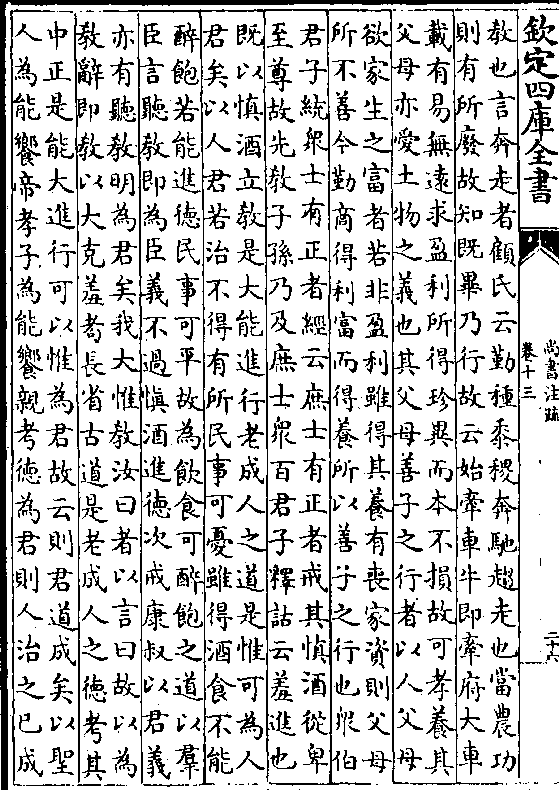 欽定四庫全書
尚書注疏
卷十三
二十六
教也言奔走者顧氏云勤種黍稷奔馳趨走也當農功
則有所廢故知既畢乃行故云始牽車牛即牽府大車
載有易無遠求盈利所得珍異而本不損故可孝養其
父母亦愛土物之義也其父母善子之行者以人父母
欲家生之富者若非盈利雖得其養有喪家資則父母
所不善今勤商得利富而得養所以善子之行也衆伯
君子統衆士有正者經云庶士有正者戒其慎酒從卑
至尊故先教子孫乃及庶士衆百君子釋詁云羞進也
既以慎酒立教是大能進行老成人之道是惟可為人
君矣以人君若治不得有所民事可憂雖得酒食不能
醉飽若能進德民事可平故為飲食可醉飽之道以羣
臣言聽教即為臣義不過慎酒進德次戒康叔以君義
亦有聽教明為君矣我大惟教汝曰者以言曰故以為
教辭即教以大克羞耉長省古道是老成人之德考其
中正是能大進行可以惟為君故云則君道成矣以聖
人為能饗帝孝子為能饗親考德為君則人治之已成